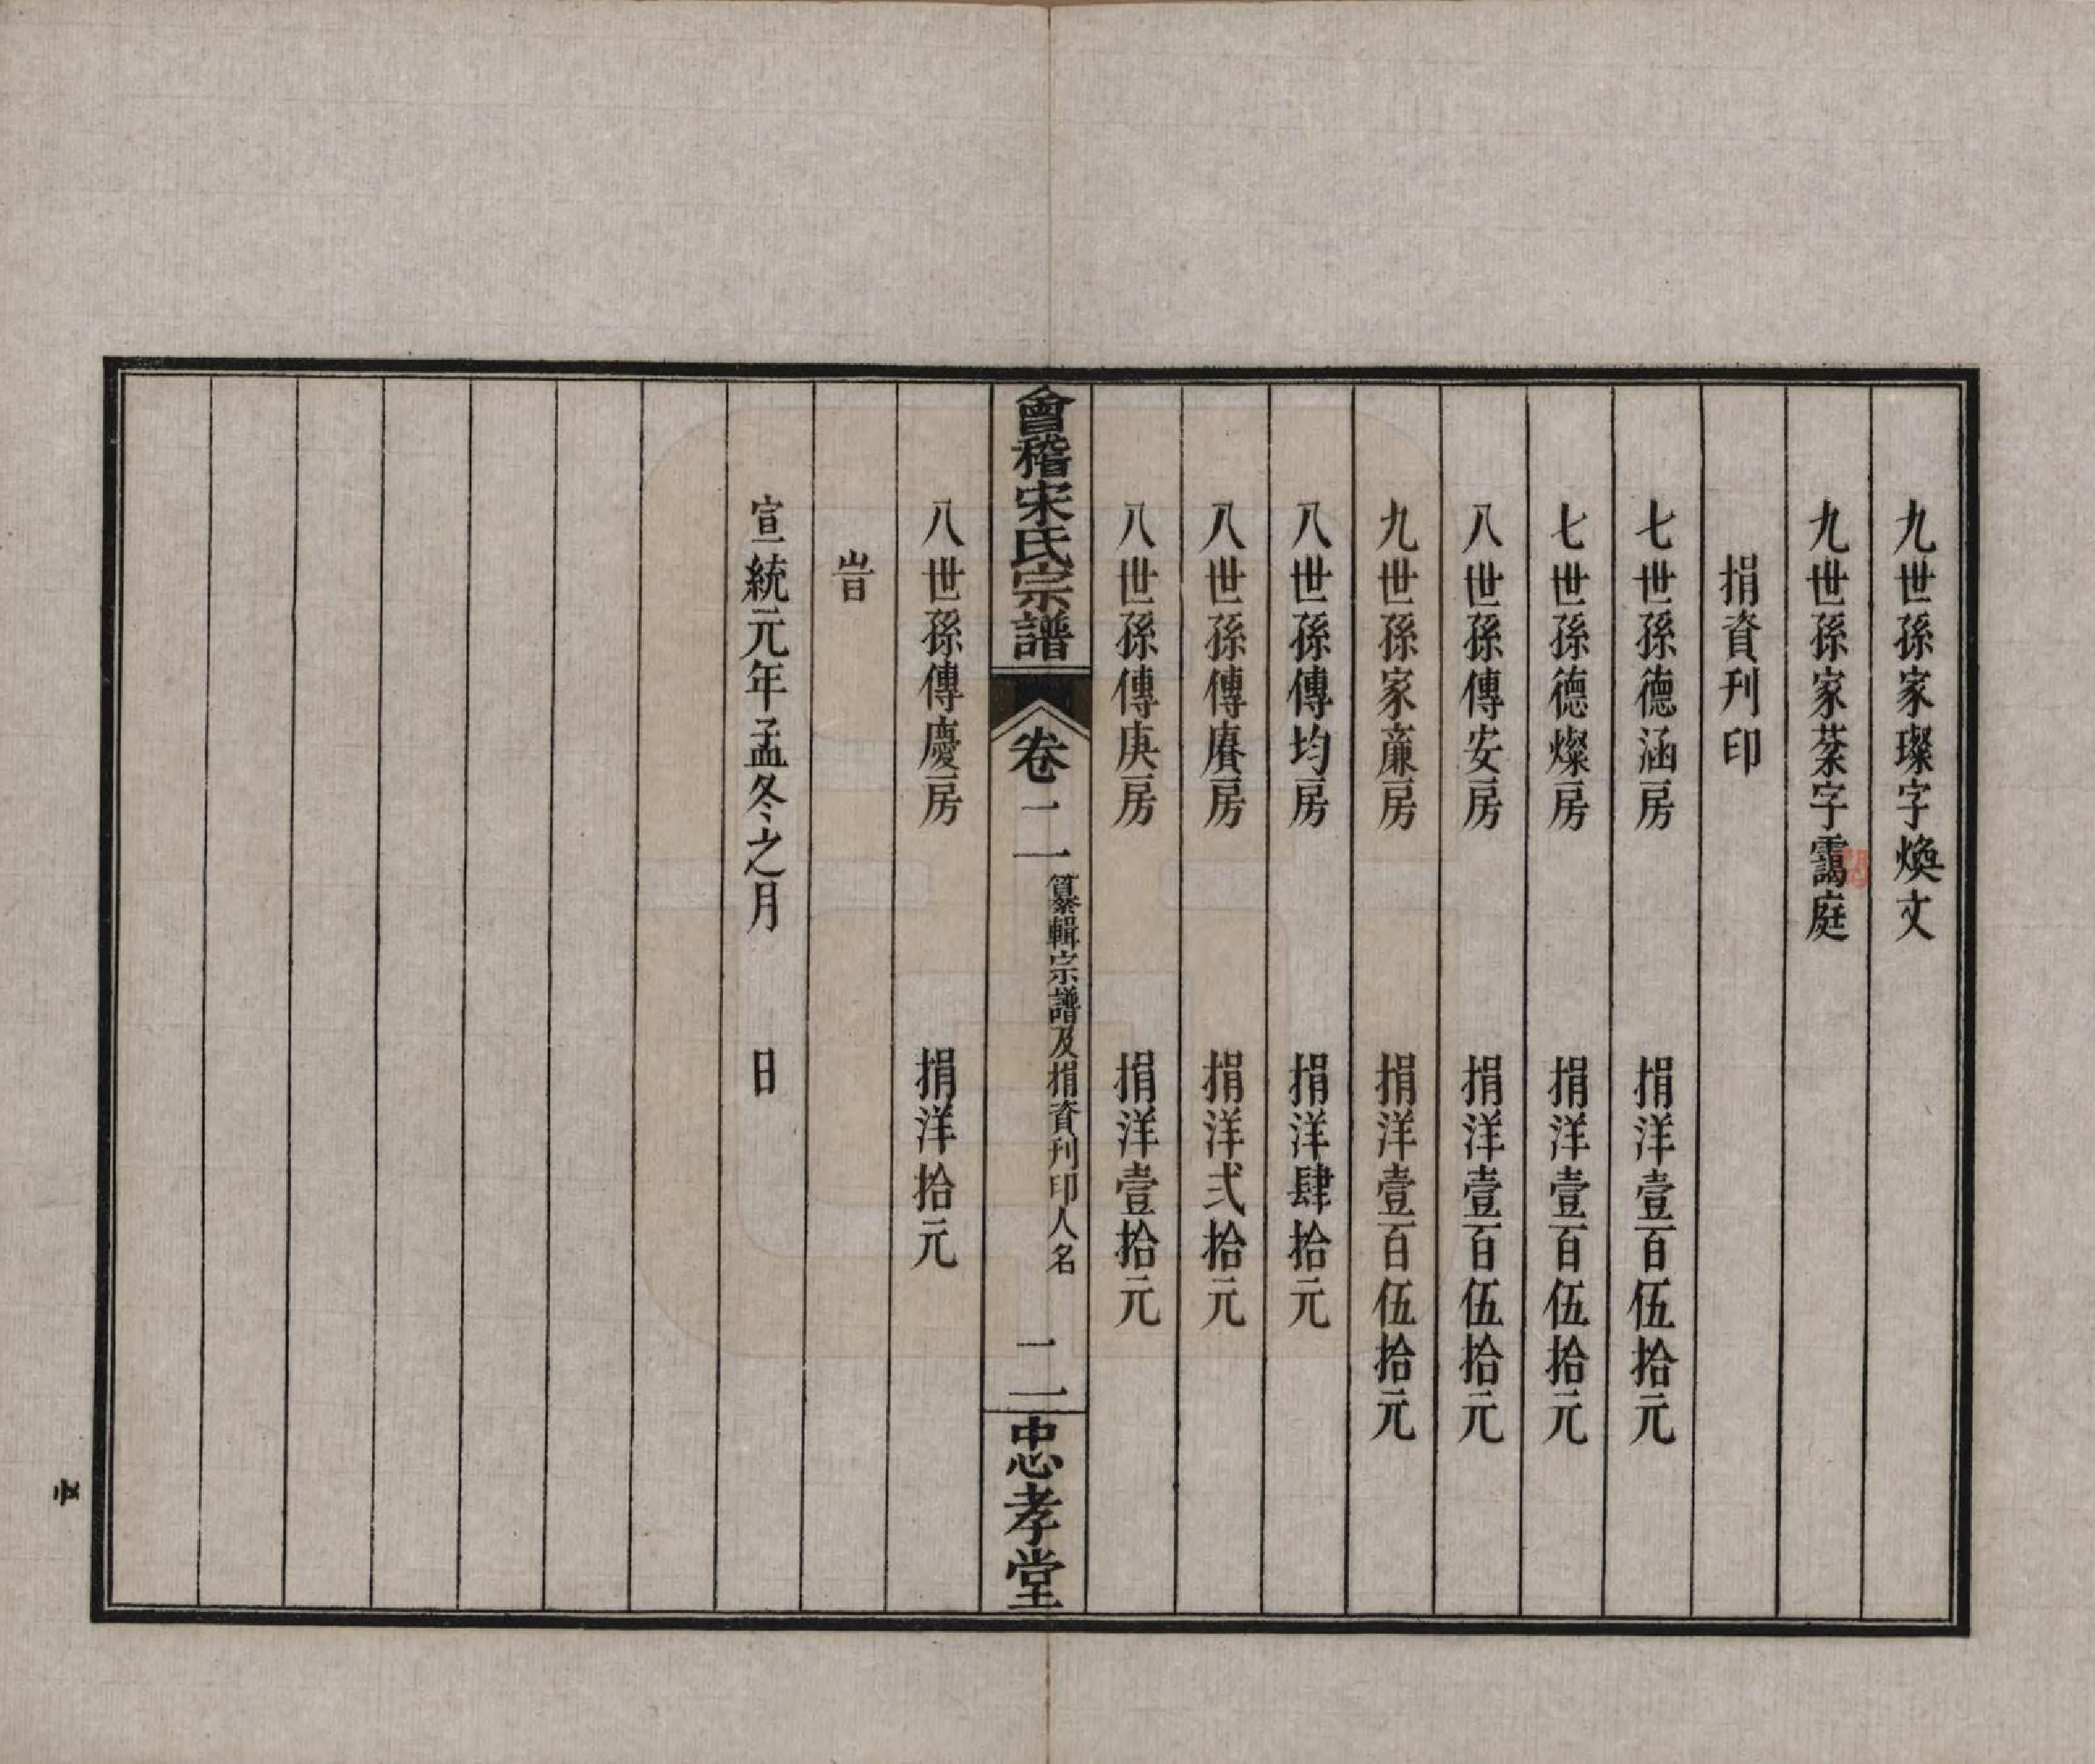 九世孫家璨字煥文
九世孫家棻字靄庭
捐資刊印
七世孫德涵房 捐洋壹百伍拾元
七世孫德燦房 捐洋壹百伍拾元
八世孫傳安房 捐洋壹百伍拾元
九世孫家廉房 捐洋壹百伍拾元
八世孫傳均房 捐洋肆拾元
八世孫傳賡房 捐洋弍拾元
八世孫傳庚房 捐洋壹拾元
會稽宋氏宗譜 卷二 纂輯宗譜及捐資刊印人名 二 忠孝堂
八世孫傳慶房 捐洋拾元
旹
宣統元年孟冬之月 日